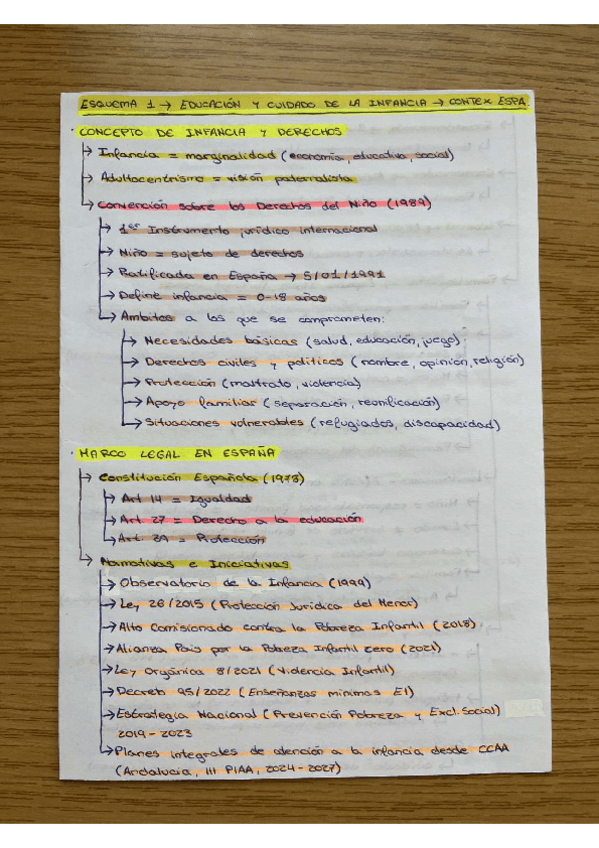 ESQUEMA 1 → EDUCACIÓN Y CUIDADO DE LA INFANCIA → CONTEX ESPA.
· CONCEPTO DE INFANCIA Y DERECHOS
→ Infancia = marginalidad (economía, educativa, social)
→ Adultocentrismo = visión paternalista
→ Convención sobre los Derechos del Niño (1989)
→ 1er Instrumento jurídico internacional
→ Niño = sujeto de derechos
→ Ratificada en España → 5/01/1991
→ Define infancia = 0-18 años
→ Ámbitos a los que se comprometen:
→ Necesidades básicas (salud, educación, juego)
→ Derechos civiles y políticos (nombre, opinión, religión)
→ Protección (maltrato, violencia)
→ Apoyo familiar (separación, reunificación)
→ Situaciones vulnerables (refugiados, discapacidad)
· MARCO LEGAL EN ESPAÑA
→ Constitución Española (1978)
→ Art 14 = Igualdad
→ Art. 27 = Derecho a la educación
→ Art. 39 = Protección
→ Normativas e Iniciativas
→ Observatorio de la Infancia (1999)
→ Ley 26/2015 (Protección Jurídica del Menor)
→ Alto Comisionado contra la Pobreza Infantil (2018)
→ Alianza País por la Pobreza Infantil Zero (2021)
→ Ley Orgánica 8/2021 (Violencia Infantil)
→ Decreto 95/2022 (Enseñanzas mínimas EI)
→ Estrategia Nacional (Prevención Pobreza y Excl. Social)
2019-2023
→ Planes integrales de atención a la infancia desde CCAA
(Andalucía, III PIAA, 2024-2027)